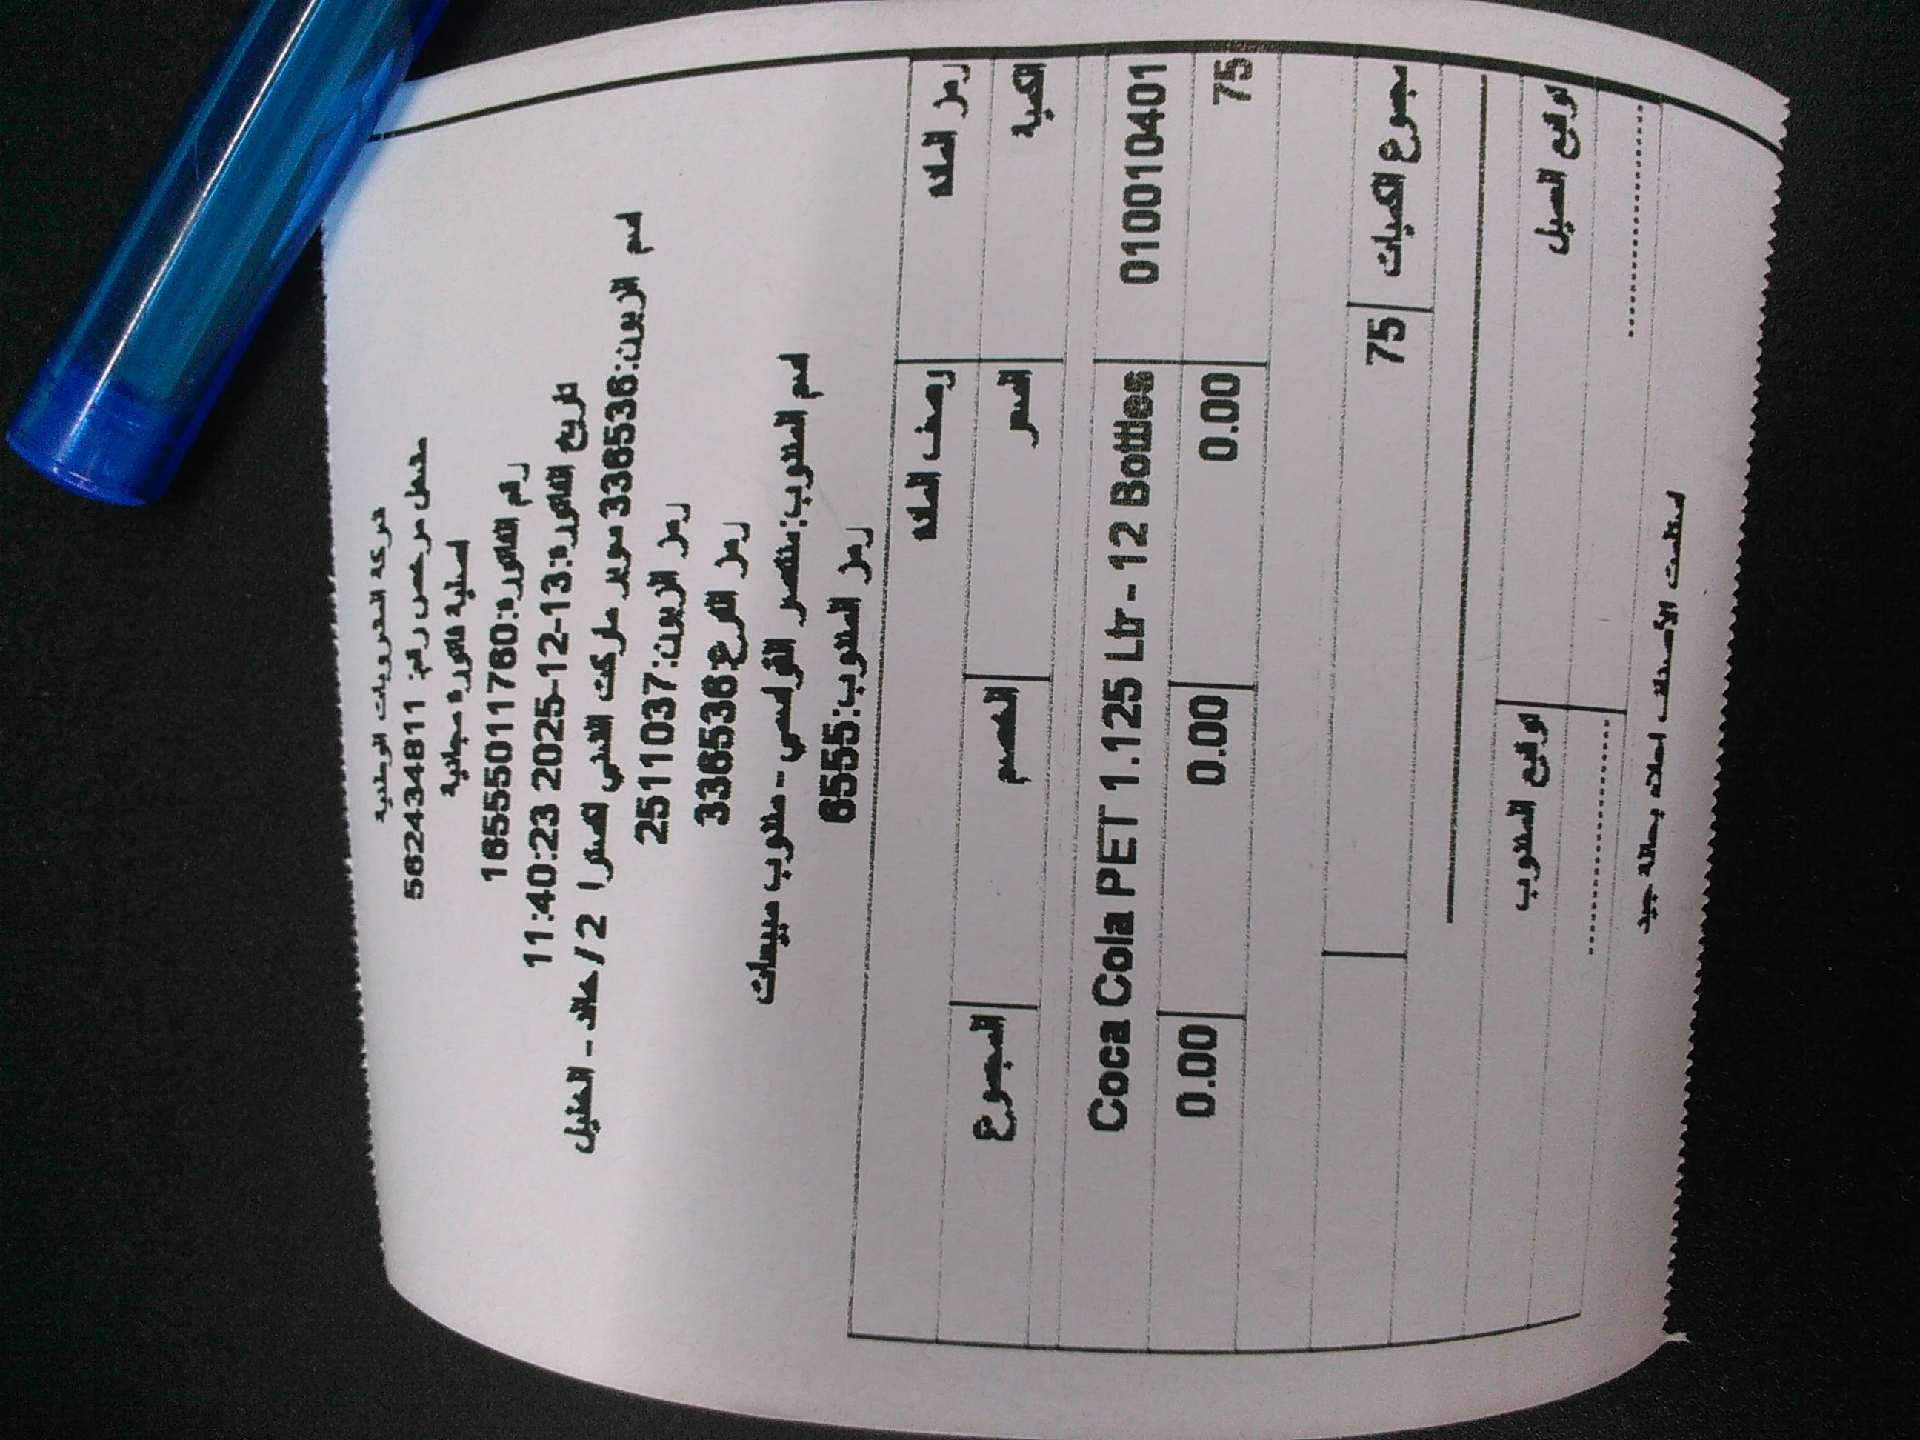 شركة المشروبات الوطنية
مشغل مرخص رقم: 562434811
استلية فاتورة مجانية
رقم الفاتورة:1655501176
تاريخ الفاتورة:2025-12-13 11:40:23
اسم الزبون:336536سوبر ماركت اللنبي لصترا 2 /خالد - الخليل
رمز الزبون:25111037
رمز الفرع:336536
اسم المندوب:منتصر القواسمي - مندوب مبيعات
رمز المندوب:6555
رمز المادة وصف المادة
الكمية السعر الخصم المجموع
010010401 Coca Cola PET 1.125 Ltr - 12 Bottles
75 0.00 0.00 0.00
مجموع الكميات 75
توقيع العميل توقيع المندوب
.................... ....................
استلمت الأصناف اعلاه بحالة جيد